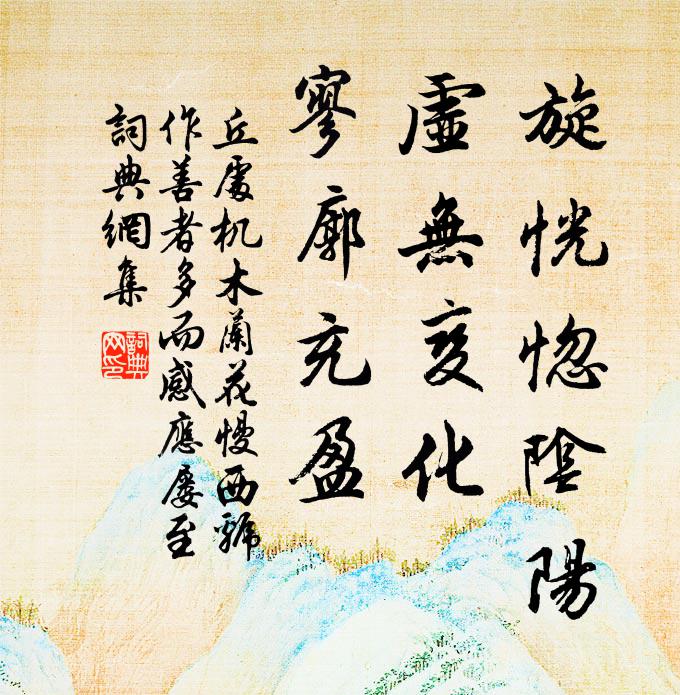 旋恍惚陰陽
虛無变化
寥廓充盈
丘處机木蘭花慢西虢
作善者多而感應屡至
詞典網集
詞典網印